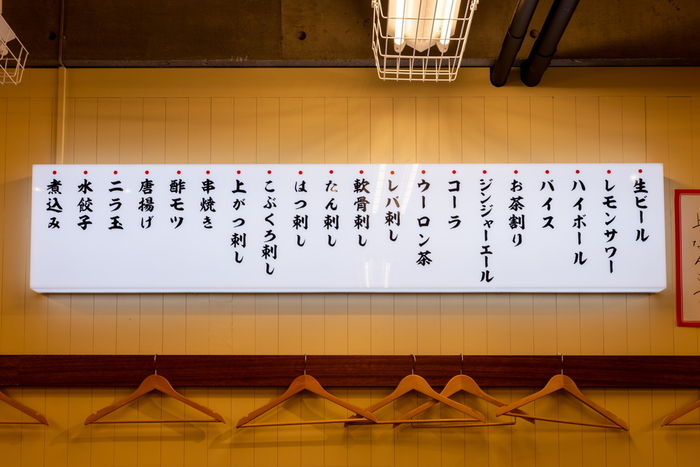 生ビール
レモンサワー
ハイボール
バイス
お茶割り
ジンジャーエール
コーラ
ウーロン茶
レバ刺し
軟骨刺し
たん刺し
はつ刺し
こぶくろ刺し
上がつ刺し
串焼き
酢モツ
唐揚げ
ニラ玉
水餃子
煮込み